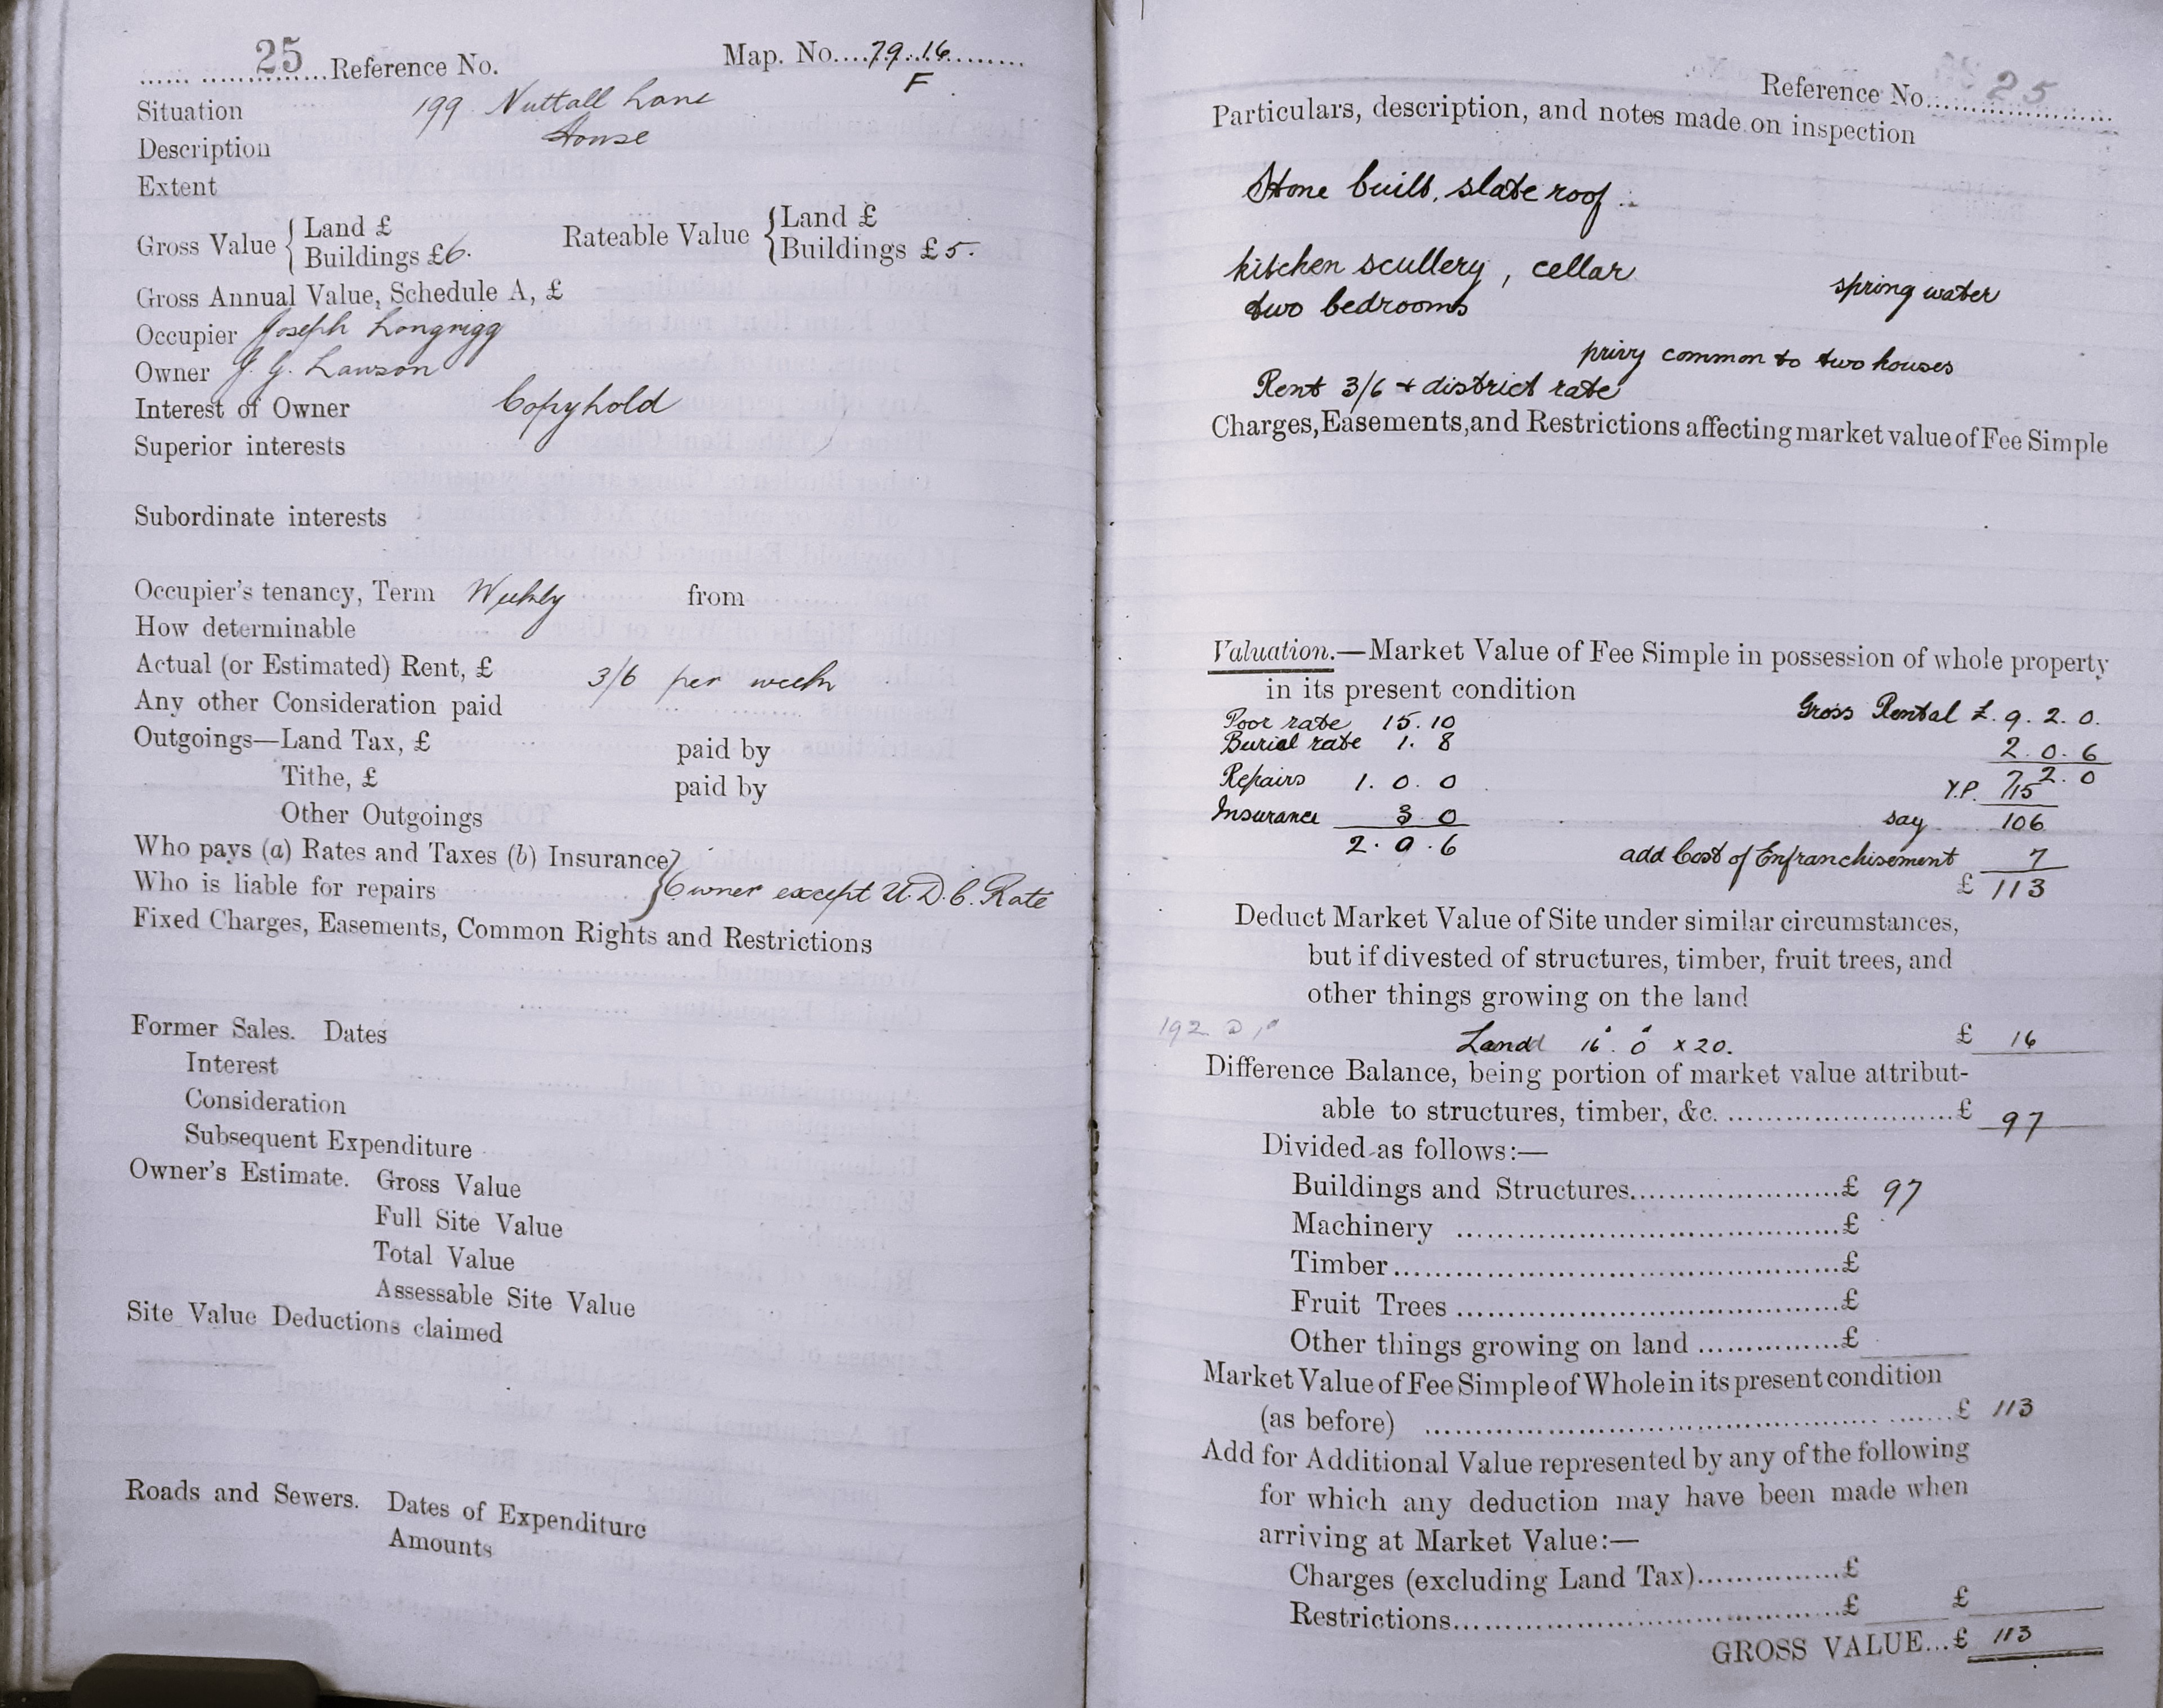 25 Reference No. Map. No. 79.16
F
Situation 199 Nuttall Lane
Description House
Extent
Gross Value { Land £ Buildings £6. Rateable Value { Land £ Buildings £5.
Gross Annual Value, Schedule A, £
Occupier Joseph Longrigg
Owner J. G. Lawson
Interest of Owner Copyhold
Superior interests
Subordinate interests
Occupier's tenancy, Term Weekly from
How determinable
Actual (or Estimated) Rent, £ 3/6 per week
Any other Consideration paid
Outgoings—Land Tax, £ paid by
Tithe, £ paid by
Other Outgoings
Who pays (a) Rates and Taxes (b) Insurance }
Who is liable for repairs } Owner except U.D.C. Rate
Fixed Charges, Easements, Common Rights and Restrictions
Former Sales. Dates
Interest
Consideration
Subsequent Expenditure
Owner's Estimate. Gross Value
Full Site Value
Total Value
Assessable Site Value
Site Value Deductions claimed
Roads and Sewers. Dates of Expenditure
Amounts
Reference No. 25
Particulars, description, and notes made on inspection
Stone built, slate roof
kitchen scullery, cellar spring water
two bedrooms
privy common to two houses
Rent 3/6 + district rate
Charges, Easements, and Restrictions affecting market value of Fee Simple
Valuation.—Market Value of Fee Simple in possession of whole property
in its present condition Gross Rental £. 9. 2. 0.
Poor rate 15. 10
Burial rate 1. 8 2. 0. 6
Repairs 1. 0. 0 7 2. 0
Y.P. 15
Insurance 3 0 say 106
2. 0. 6 add Cost of Enfranchisement 7
£ 113
Deduct Market Value of Site under similar circumstances,
but if divested of structures, timber, fruit trees, and
other things growing on the land
Land 16'. 0" x 20. £ 16
Difference Balance, being portion of market value attribut-
able to structures, timber, &c. £ 97
Divided as follows:—
Buildings and Structures £ 97
Machinery £
Timber £
Fruit Trees £
Other things growing on land £
Market Value of Fee Simple of Whole in its present condition
(as before) £ 113
Add for Additional Value represented by any of the following
for which any deduction may have been made when
arriving at Market Value:—
Charges (excluding Land Tax) £
Restrictions £ £
GROSS VALUE... £ 113